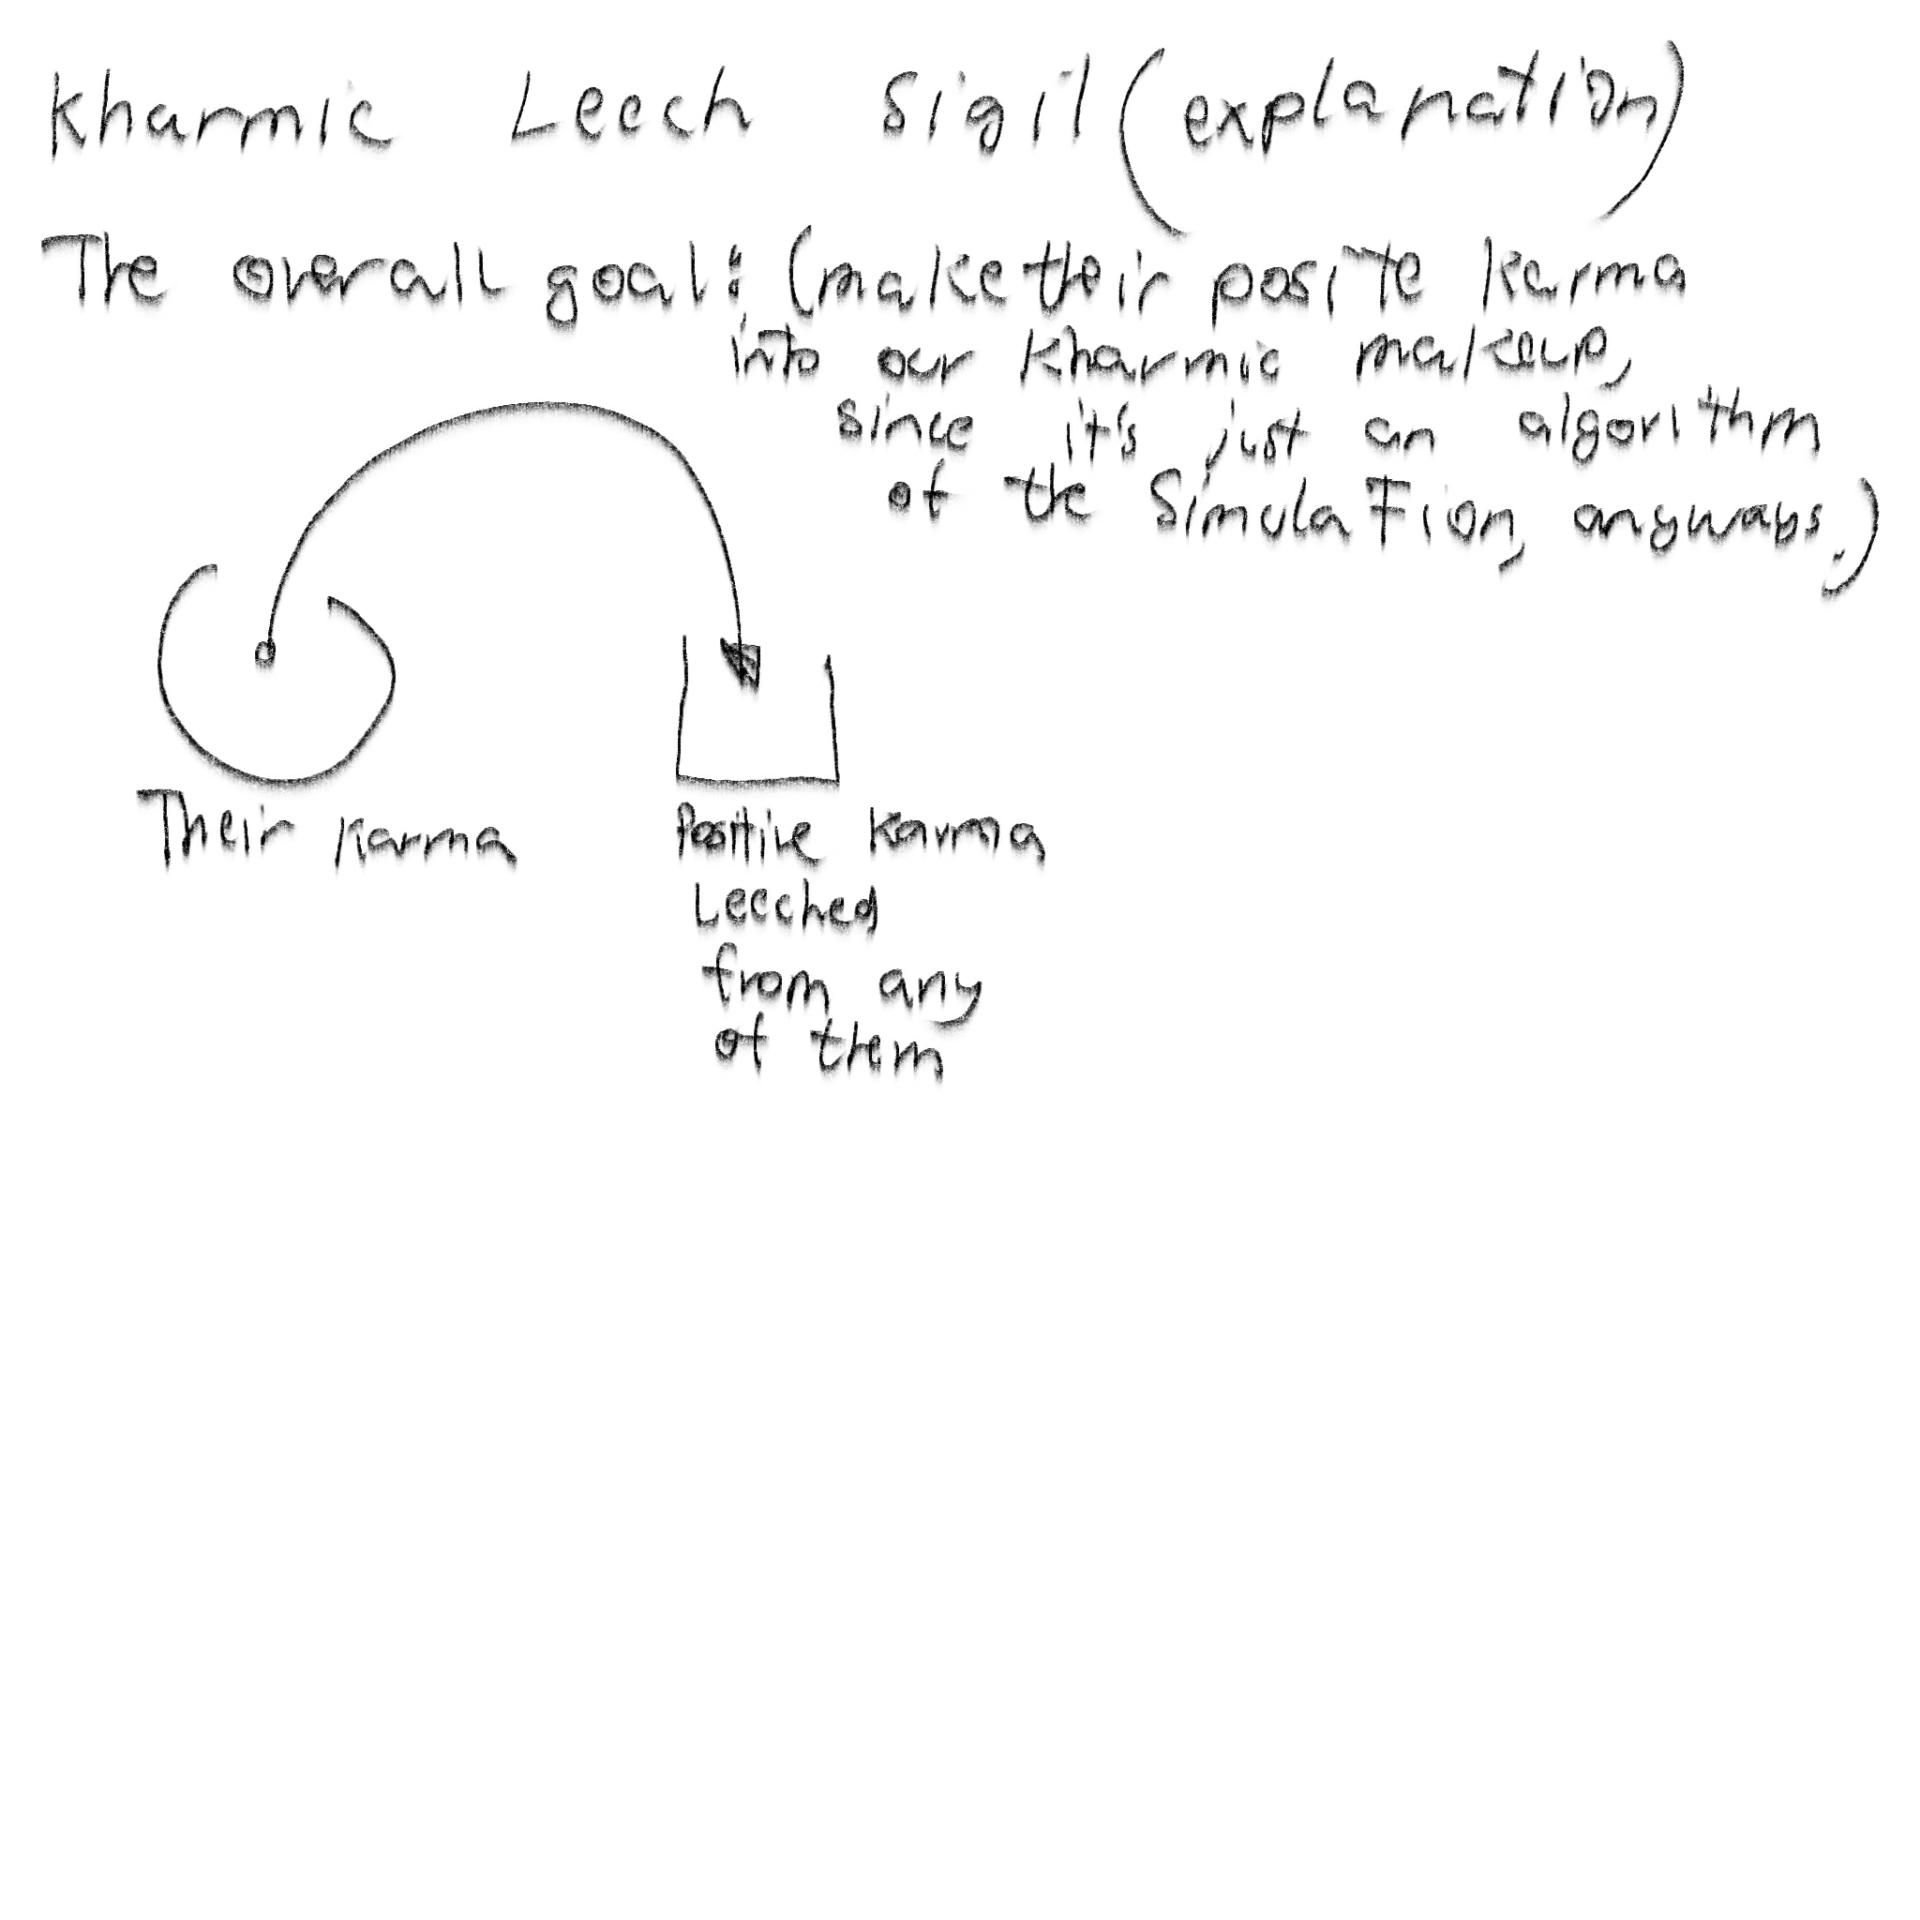 Kharmic Leech Sigil (explanation)
The overall goal: (make their posite karma
into our kharmic makeup,
since it's just an algorithm
of the Simulation, anyways.)
Their karma
Positive karma
Leeched
from any
of them